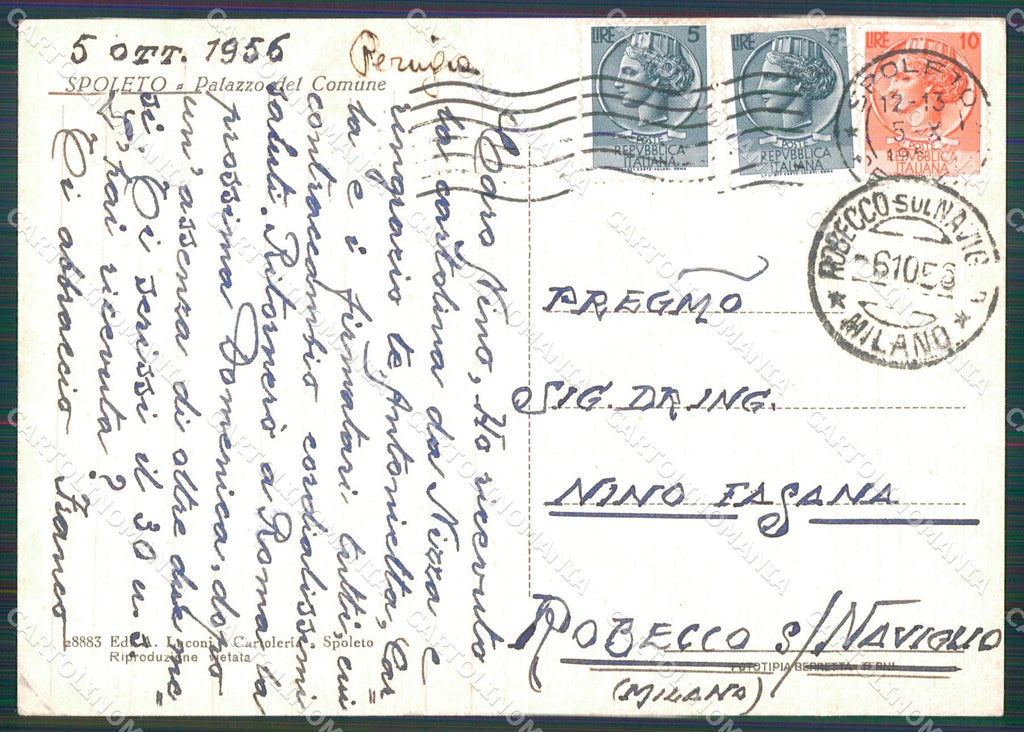 5 OTT. 1956
Perugia
SPOLETO - Palazzo del Comune
Caro Nino, Ho ricevuto
la cartolina da Nizza e
ringrazio te, Antonietta, Car=
la e i firmatari tutti, cui
contraccambio cordialissimi
saluti. Ritornerò a Roma la
prossima Domenica, dopo
un'assenza di oltre due me=
si. Ti scrissi il 30 u.s.
L'hai ricevuta?
Ti abbraccio Franco
28883 Ed. A. Luconi - Cartoleria - Spoleto
Riproduzione vietata
LIRE 5
POSTE
REPVBBLICA
ITALIANA
LIRE 5
POSTE
REPVBBLICA
ITALIANA
LIRE 10
POSTE
REPVBBLICA
ITALIANA
SPOLETO
12-13
5-X
ROBECCO SUL NAVIGLIO
6.10.56
* MILANO *
PREGMO
SIG. DR. ING.
NINO FASANA
ROBECCO S/NAVIGLIO
(MILANO)
FOTOTIPIA BERRETTA - TERNI
CARTOLINOMANIA